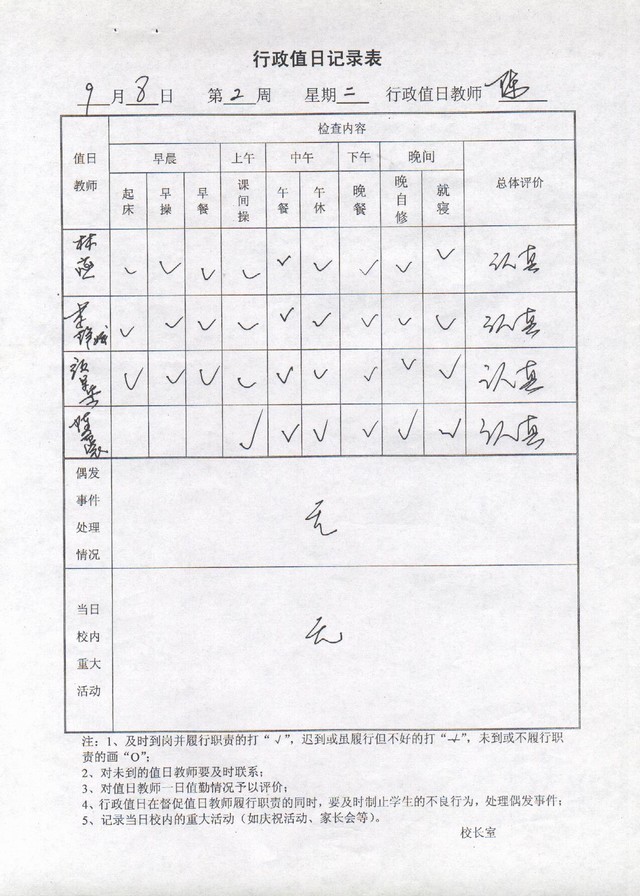 行政值日记录表
9月8日 第2周 星期二 行政值日教师 陈
值日教师 检查内容 总体评价
早晨 上午 中午 下午 晚间
起床 早操 早餐 课间操 午餐 午休 晚餐 晚自修 就寝
林 ✓ ✓ ✓ ✓ ✓ ✓ ✓ ✓ ✓ 认真
✓ ✓ ✓ ✓ ✓ ✓ ✓ ✓ ✓ 认真
✓ ✓ ✓ ✓ ✓ ✓ ✓ ✓ ✓ 认真
✓ ✓ ✓ ✓ ✓ ✓ 认真
偶发事件处理情况 无
当日校内重大活动 无
注：1、及时到岗并履行职责的打“√”，迟到或虽履行但不好的打“”，未到或不履行职
责的画“O”；
2、对未到的值日教师要及时联系；
3、对值日教师一日值勤情况予以评价；
4、行政值日在督促值日教师履行职责的同时，要及时制止学生的不良行为，处理偶发事件；
5、记录当日校内的重大活动（如庆祝活动、家长会等）。
校长室